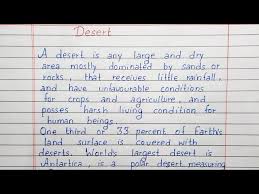 Desert
A desert is any large and dry
area mostly dominated by sands or
rocks, that receives little rainfall,
and have unfavourable conditions
for crops and agriculture, and
posses harsh living condition for
human beings.
One third or 33 percent of Earth's
land surface is covered with
deserts. World's largest desert is
Antartica, is a polar desert measuring